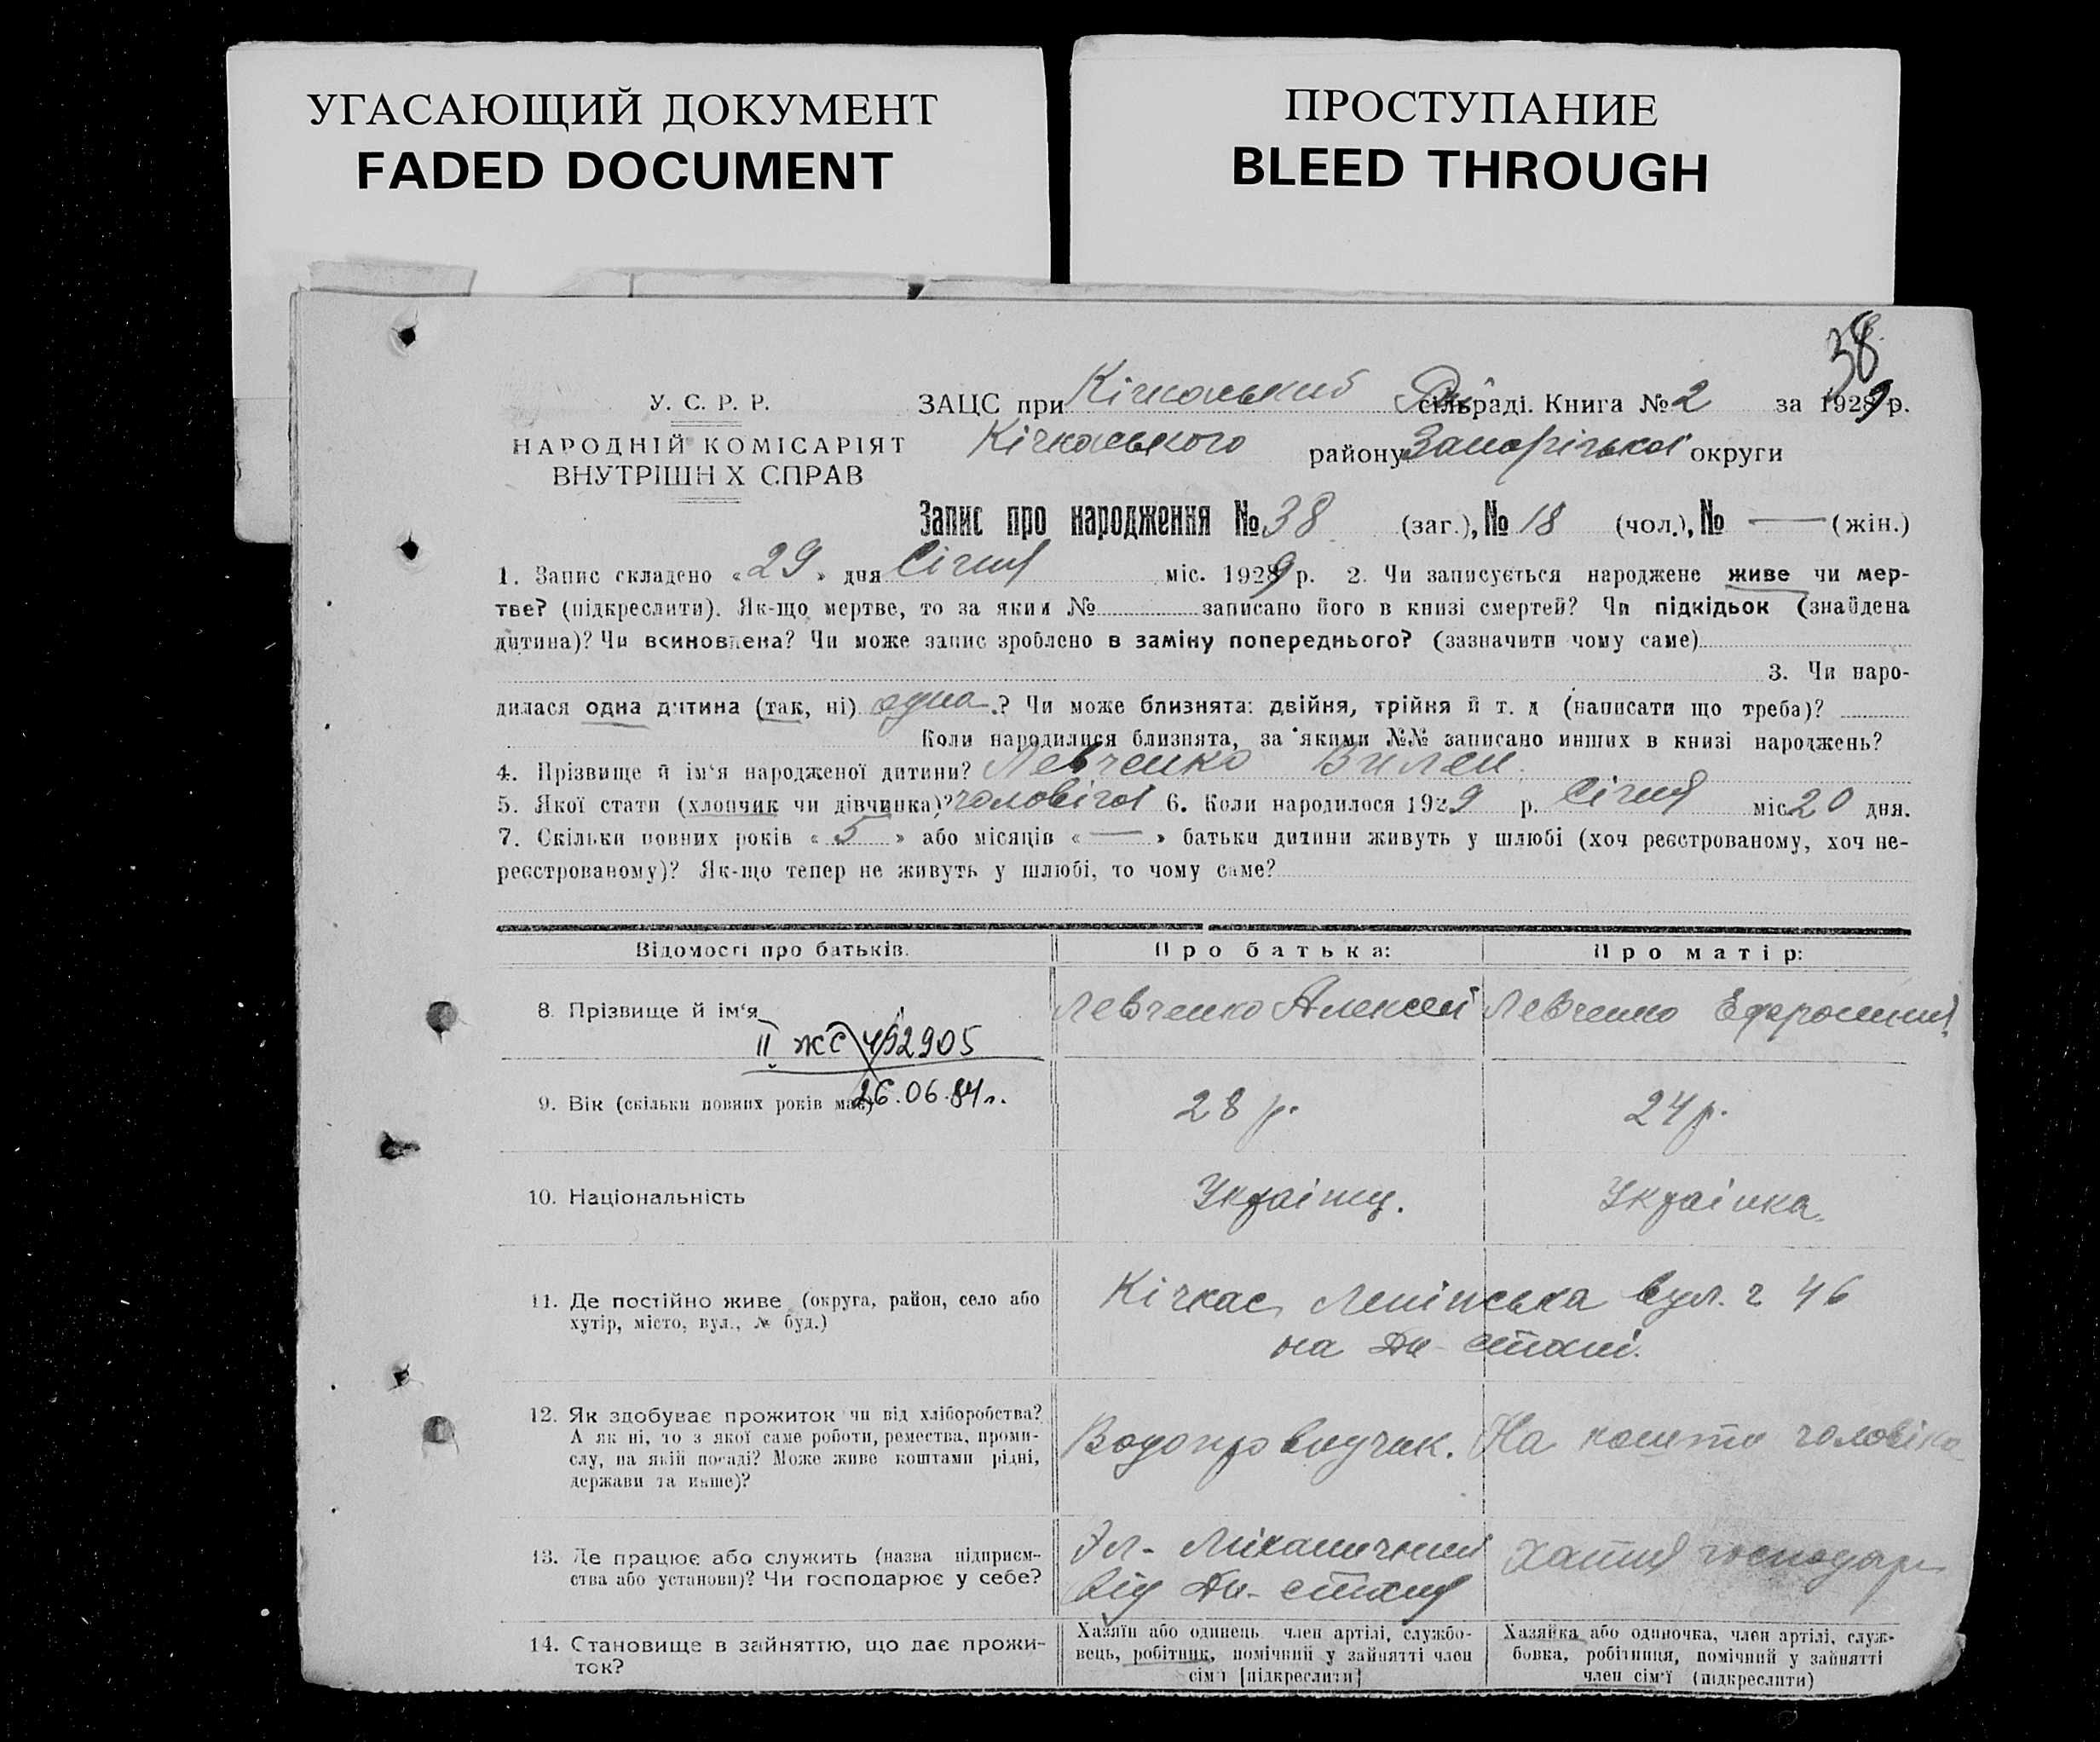 УГАСАЮЩИЙ ДОКУМЕНТ
FADED DOCUMENT
ПРОСТУПАНИЕ
BLEED THROUGH
38
У. С. Р. Р.
НАРОДНІЙ КОМІСАРІЯТ
ВНУТРІШН Х СПРАВ
ЗАЦС при Кічкаський сільраді. Книга № 2 за 1929 р.
Кічкаського району Запорізької округи
Запис про народження № 38 (заг.), № 18 (чол.), № — (жін.)
1. Запис складено «29» дня Січня міс. 1929 р. 2. Чи записується народжене живе чи мер-
тве? (підкреслити). Як-що мертве, то за яким № записано його в книзі смертей? Чи підкідьок (знайдена
дитина)? Чи всиновлена? Чи може запис зроблено в заміну попереднього? (зазначити чому саме)
3. Чи наро-
дилася одна дитина (так, ні) одна ? Чи може близнята: двійня, трійня й т. д (написати що треба)?
Коли народилися близнята, за якими №№ записано инших в книзі народжень?
4. Прізвище й ім'я народженої дитини? Левченко Вилен
5. Якої стати (хлопчик чи дівчинка)? чоловічої 6. Коли народилося 1929 р. Січня міс 20 дня.
7. Скільки повних років «5» або місяців «—» батьки дитини живуть у шлюбі (хоч реєстрованому, хоч не-
реєстрованому)? Як-що тепер не живуть у шлюбі, то чому саме?
Відомості про батьків. Про батька: Про матір:
8. Прізвище й ім'я Левченко Алексей Левченко Ефросиния
ІІ ЖС 492905
26.06.84г.
9. Вік (скільки повних років має) 28 р. 24 р.
10. Національність Українц. Українка.
11. Де постійно живе (округа, район, село або
хутір, місто, вул., № буд.)
Кічкас Ленінська вул. ч 46
на Дн-стані.
12. Як здобуває прожиток чи від хліборобства?
А як ні, то з якої саме роботи, ремества, проми-
слу, на якій посаді? Може живе коштами рідні,
держави та инше)?
Водопроводчик. На кошти чоловіка
13. Де працює або служить (назва підприєм-
ства або установи)? Чи господарює у себе?
Ел- Механичний
Від Дн- стану
Хатня господар
14. Становище в зайняттю, що дає прожи-
ток?
Хазяїн або одинець член артілі, службо-
вець, робітник, помічний у зайнятті член
сім'ї [підкреслити]
Хазяйка або одиночка, член артілі, служ-
бовка, робітниця, помічний у зайнятті
член сім'ї (підкреслити)